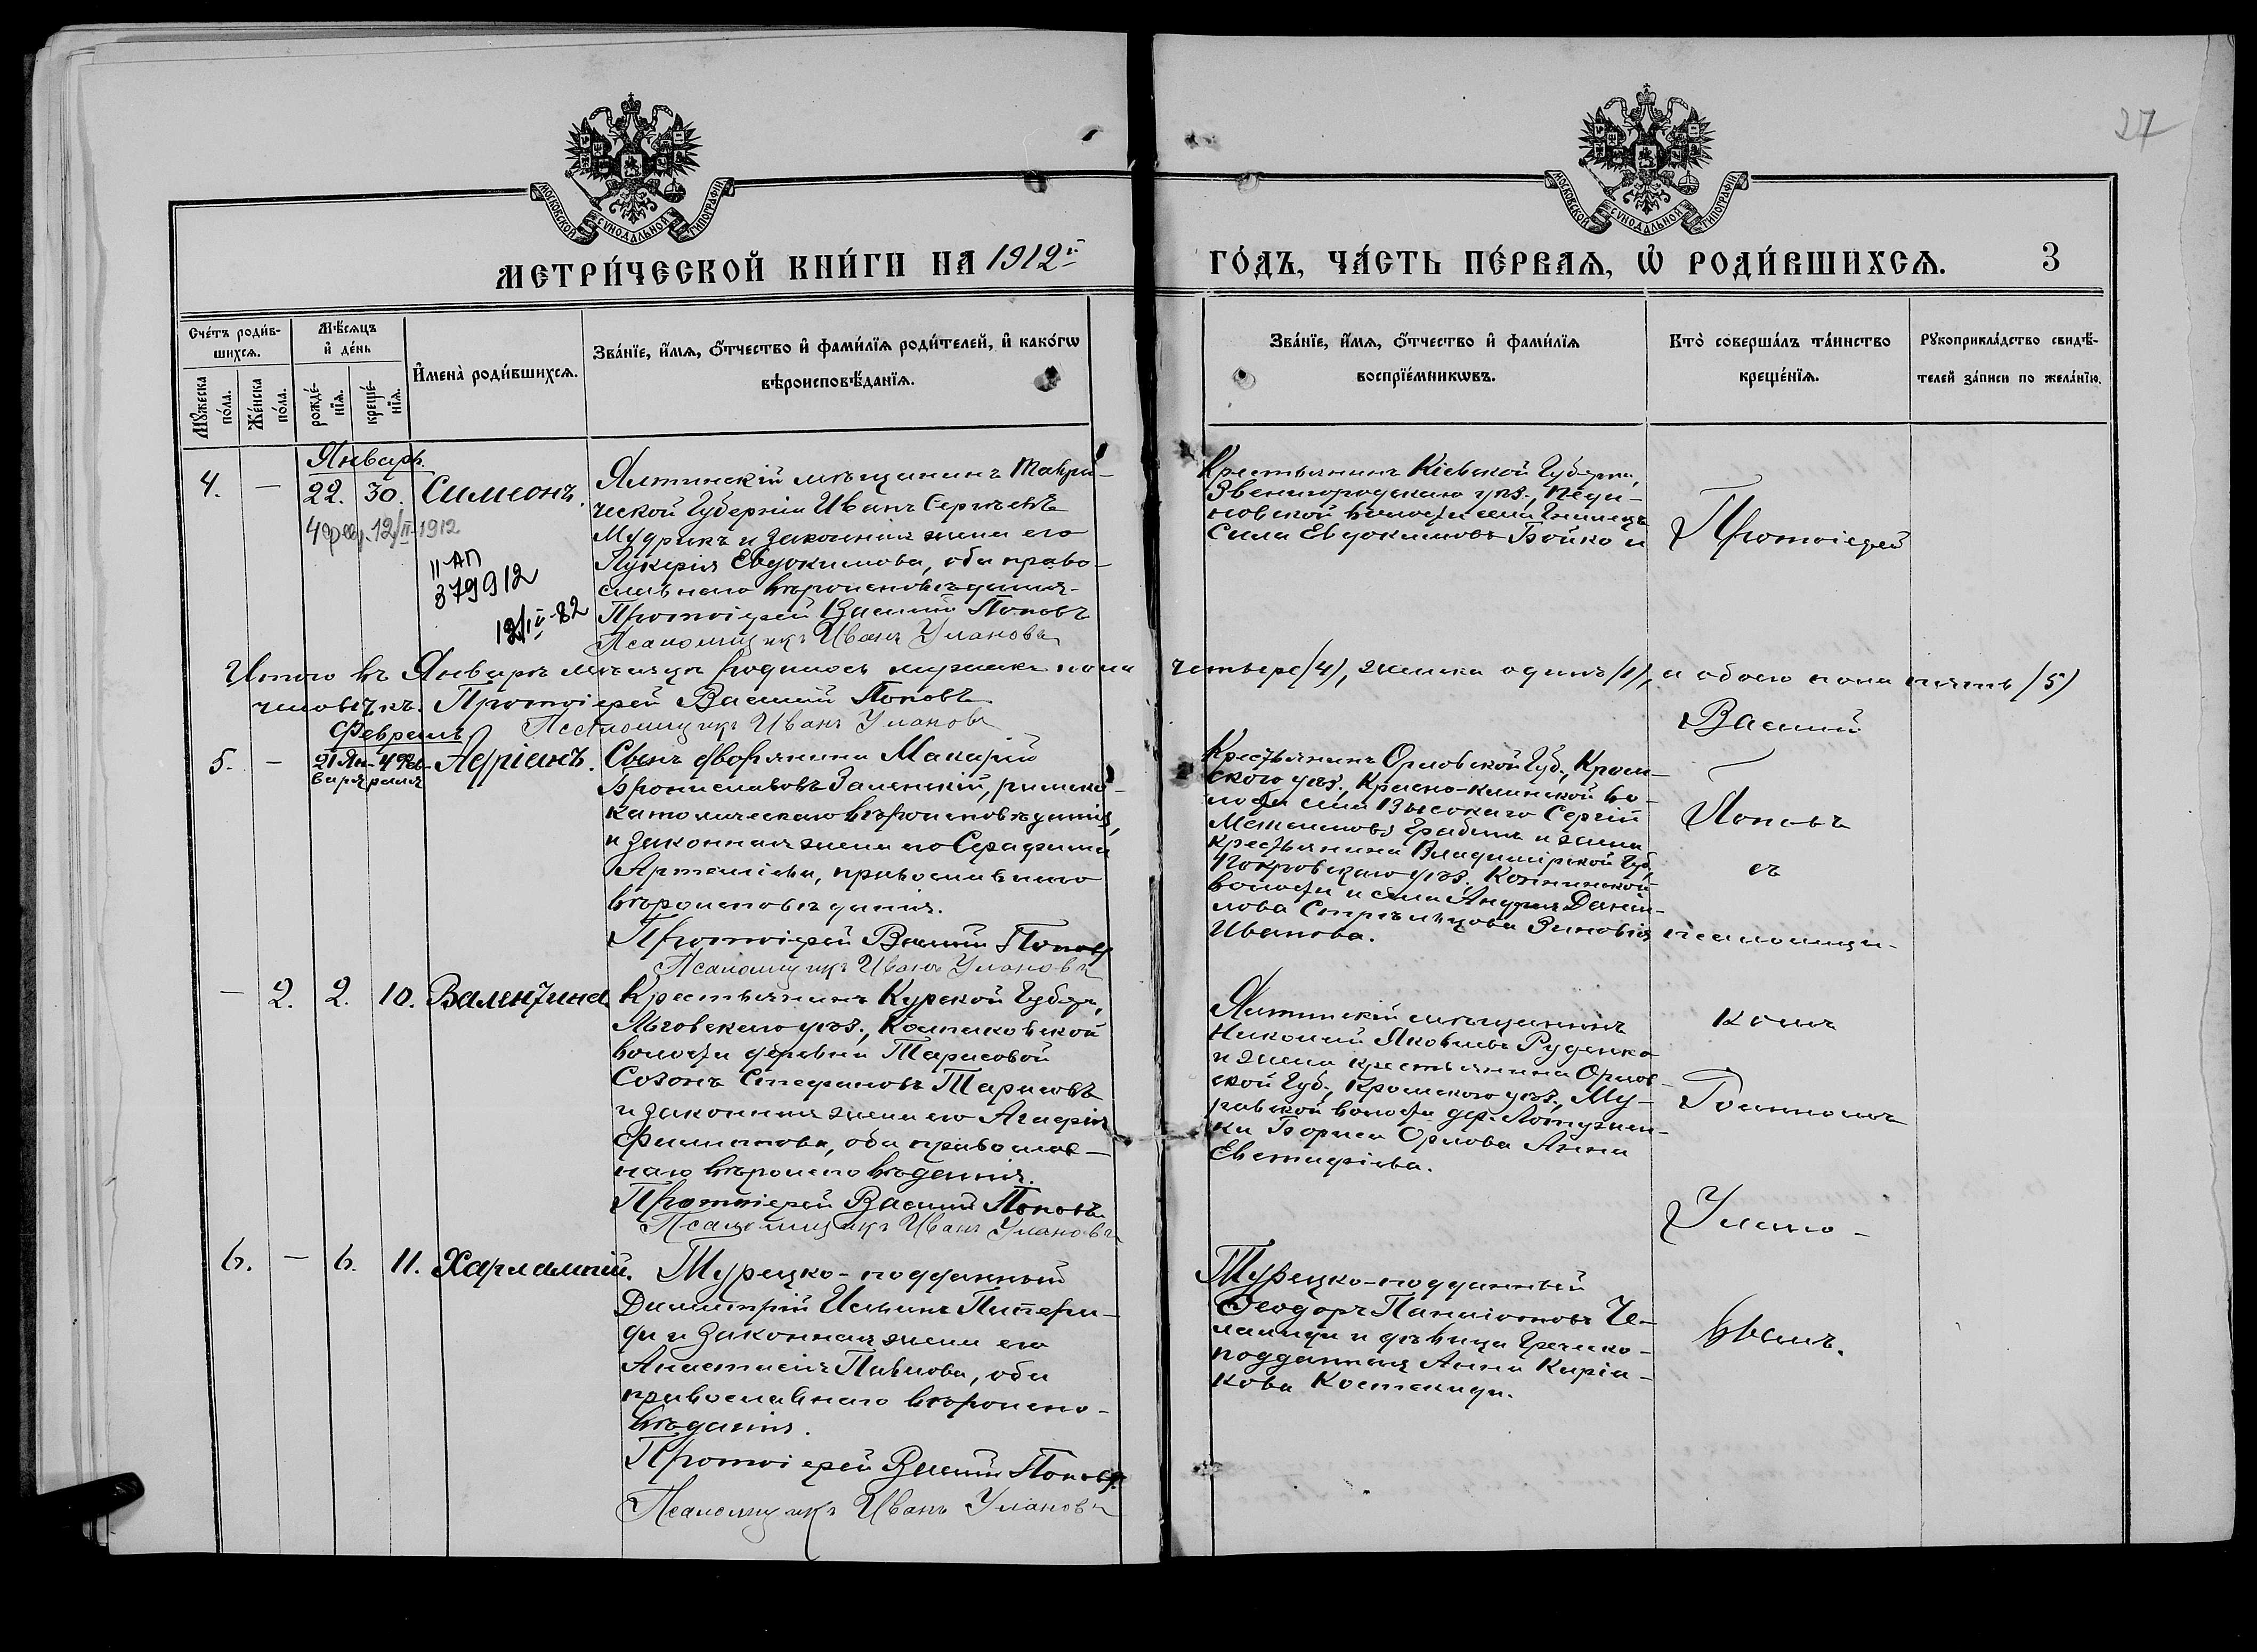 27
МОСКОВСКОЙ СѴНОДАЛЬНОЙ ТИПОГРАФІИ
МОСКОВСКОЙ СѴНОДАЛЬНОЙ ТИПОГРАФІИ
МЕТРИ́ЧЕСКОЙ КНИ́ГИ НА 1912й
ГО́ДЪ, ЧА́СТЬ ПЕ́РВАЯ, Ѡ҆ РОДИ́ВШИХСЯ. 3
Сче́тъ роди́в-
шихсѧ.
Мꙋ́жеска по́ла.
Же́нска по́ла.
Мѣ́сѧцъ и҆ де́нь
рожде́-нїѧ.
креще́-нїѧ.
И҆мена̀ роди́вшихсѧ.
Зва́нїе, и҆́мѧ, ѻ҆́тчество и҆ фами́лїѧ роди́телей, и҆ како́гѡ
вѣроисповѣ́данїѧ.
Зва́нїе, и҆́мѧ, ѻ҆́тчество и҆ фами́лїѧ
воспрїе́мникѡвъ.
Кто̀ соверша́лъ та́инство
креще́нїѧ.
Рꙋкоприкла́дство свидѣ́-
телей за́писи по жела́нїю.
Январь.
4. — 22. 30. Симеонъ.
4 фев. 12/II-1912
II-АП
379912
12/IV-82
Ялтинскій мѣщанинъ Таври-
ческой Губерніи Иванъ Сергѣевъ
Мудрикъ и законная жена его
Лукерія Евдокимова, оба право-
славнаго вѣроисповѣданія.
Протоіерей Василій Поповъ
Псаломщикъ Иванъ Улановъ
Крестьянинъ Кіевской Губерн.,
Звенигородскаго уѣз.,
новской волости села
Сила Евдокимовъ Бойко и
Протоіерей
Итого въ Январѣ мѣсяцѣ родилось мужеска пола четыре (4), женска одинъ (1), а обоего пола пять (5)
человѣкъ. Протоіерей Василій Поповъ
Псаломщикъ Иванъ Улановъ
Василій
Февраль
5. — 21 Ян-варя 4 Фев-раля Адріанъ.
Сынъ дворянина Макарій
Брониславовъ Заленскій, римско-
католическаго вѣроисповѣданія,
и законная жена его Серафима
Артеміева, православнаго
вѣроисповѣданія.
Протоіерей Василій Поповъ
Псаломщикъ Иванъ Улановъ
Крестьянинъ Орловской Губ., Кром-
ского уѣз., Красно-клинской во-
лости села Высокаго Сергій
и жена
крестьянина Владимірской Губ,
Покровскаго уѣз.
волости и села Андрея Данiи-
лова Стрѣльцова Зиновія
Иванова.
Поповъ
съ
псаломщи-
— 2. 2. 10. Валентина
Крестьянинъ Курской Губерн,
Льговскаго уѣз.,
волости деревни Тарасовой
Созонъ Стефановъ Тарасовъ
и законная жена его Агафія
Филиппова, оба православ-
наго вѣроисповѣданія.
Протоіерей Василій Поповъ
Псаломщикъ Иванъ Улановъ
Ялтинскій мѣщанинъ
Николай Яковлевъ Руденко
и жена крестьянина Орлов-
ской Губ., Кромского уѣз., Му-
равской волости дер.
ки Бориса Орлова Анна
Евстафіева.
комъ
Іоанномъ
Улано-
6. — 6. 11. Харлампій.
Турецко-подданный
Димитрій Ильинъ Пипери-
ди и законная жена его
Анастасія Павлова, оба
православнаго вѣроиспо-
вѣданія.
Протоіерей Василій Поповъ
Псаломщикъ Иванъ Улановъ
Турецко-подданный
Ѳеодоръ Панаіотовъ Че-
лаиди и дѣвица Греческо-
подданная Анна Киріа-
кова Костакиди.
вымъ.